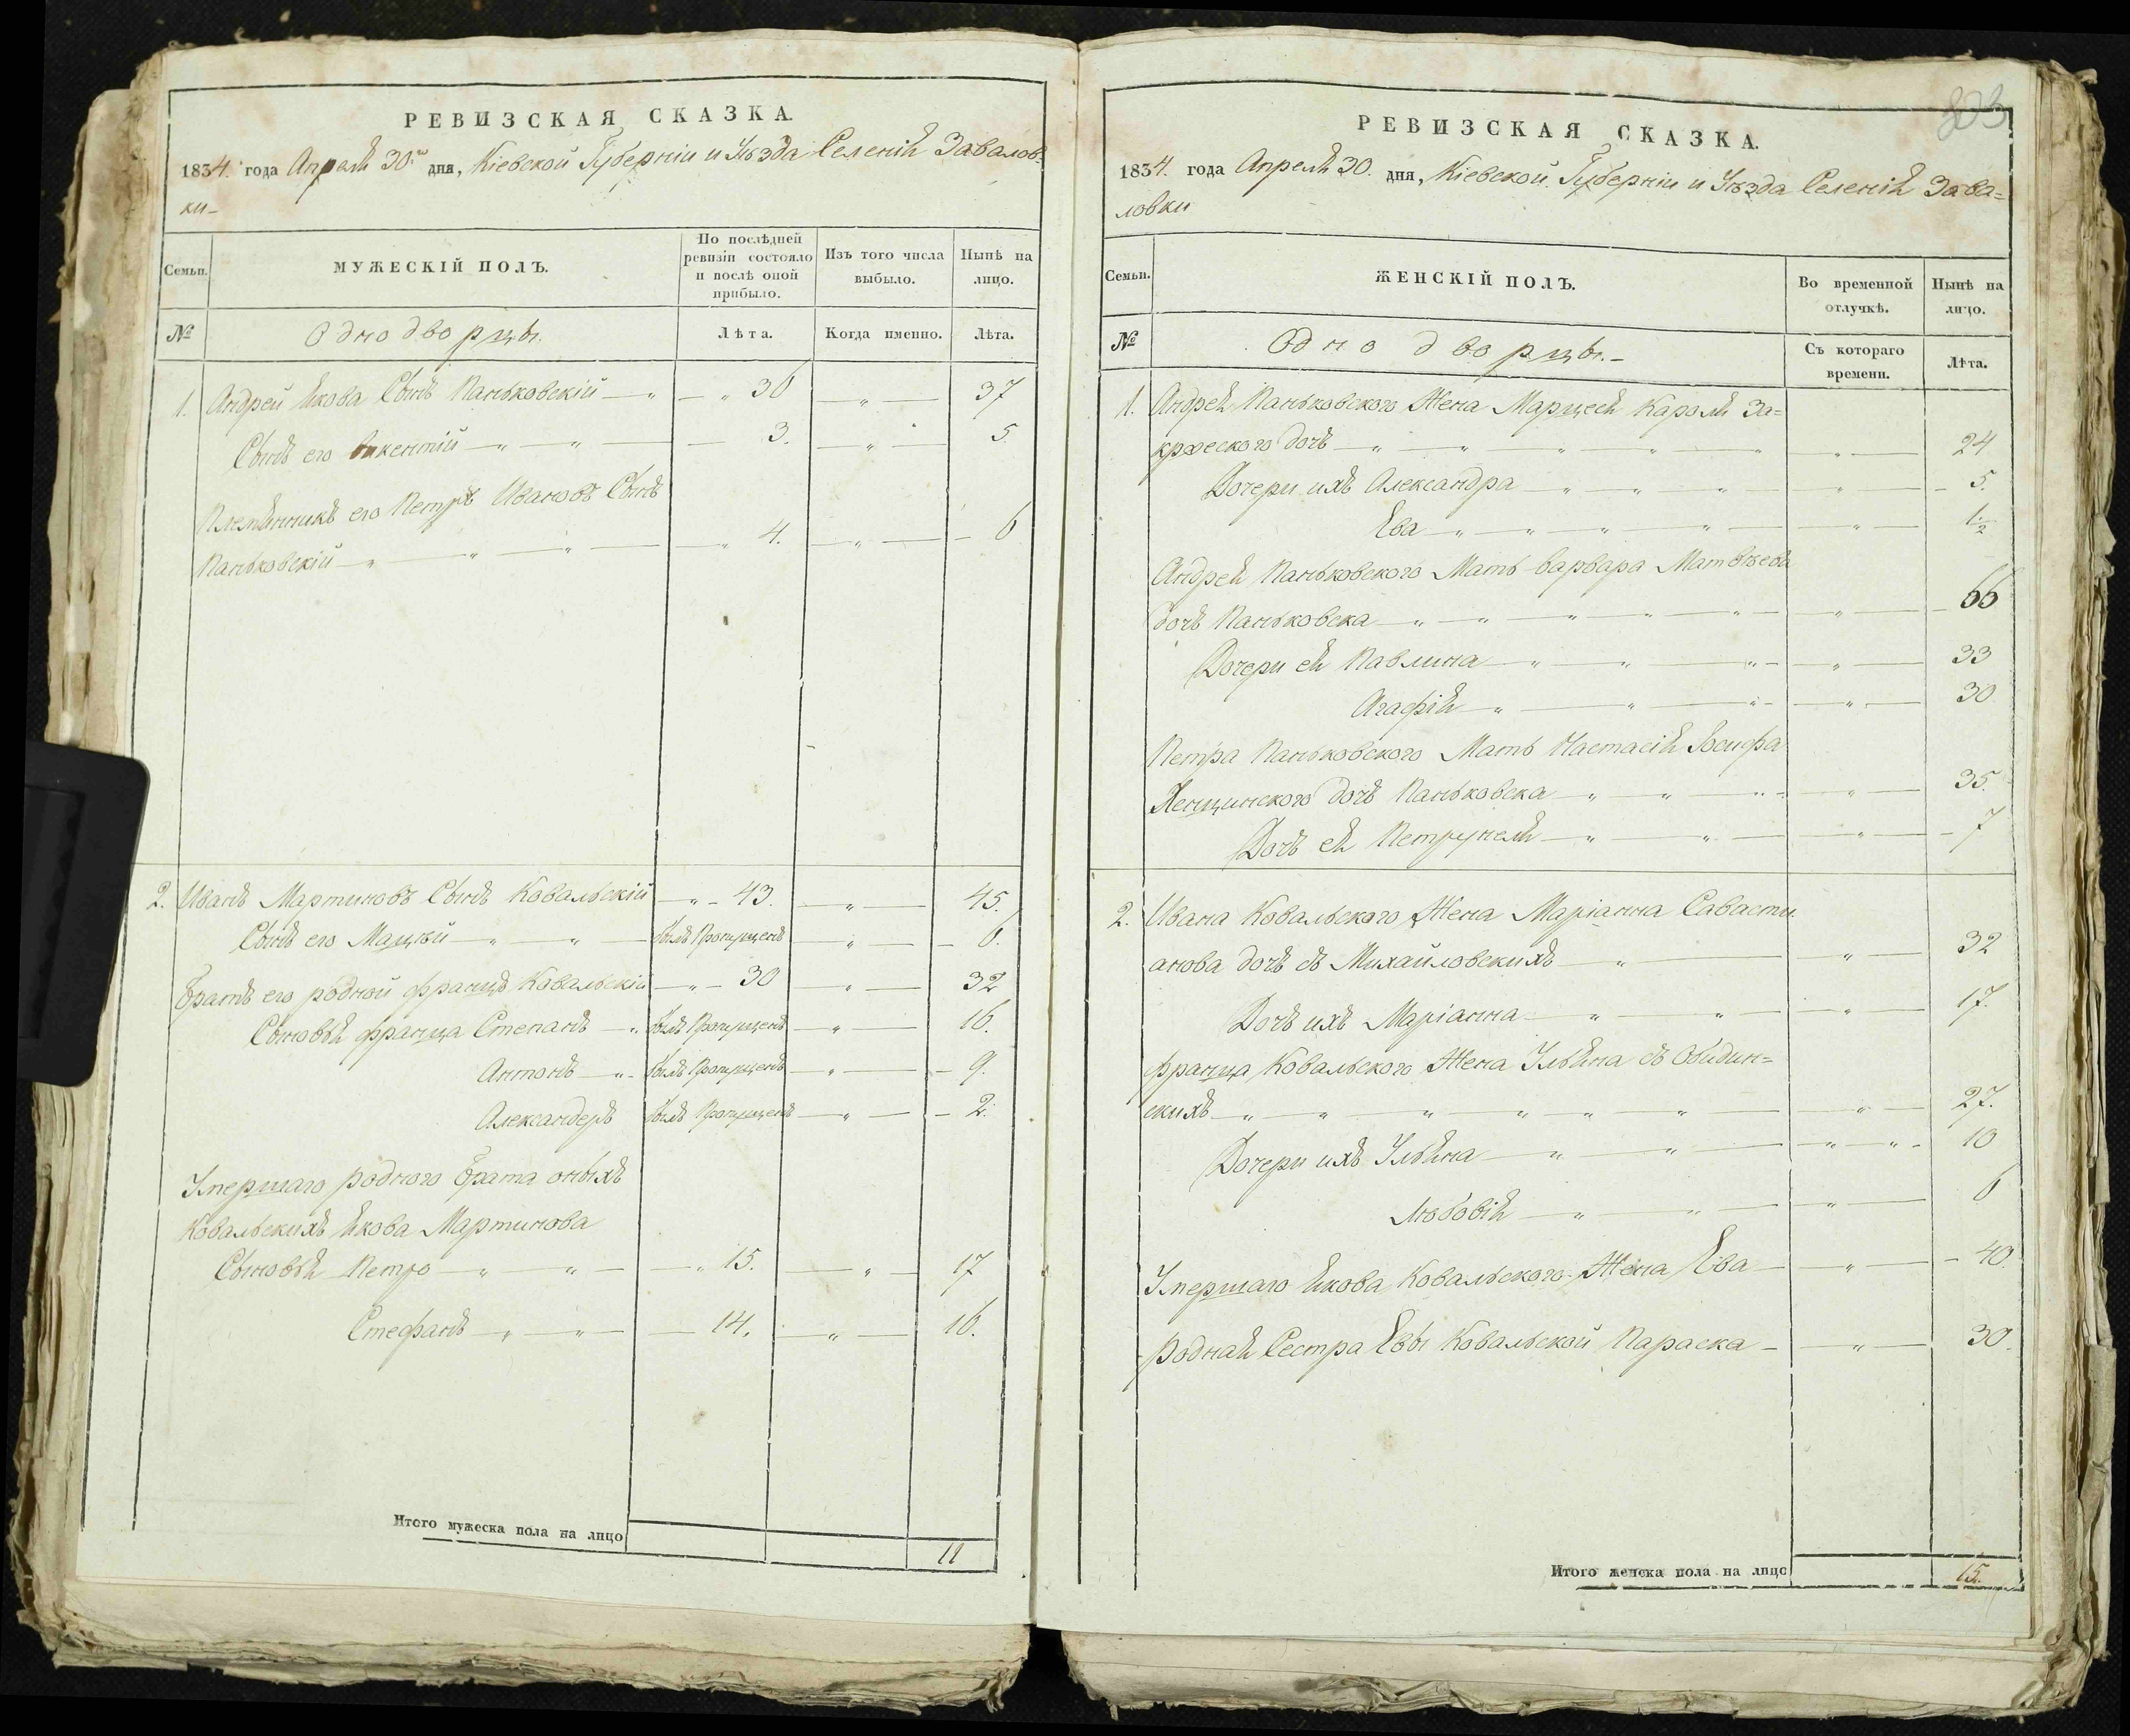 РЕВИЗСКАЯ СКАЗКА.
1834. года Апреля 30го дня, Кіевской Губерніи и Уѣзда Селенія Завалов-
ки-
Семьи.
МУЖЕСКІЙ ПОЛЪ.
По послѣдней ревизіи состояло и послѣ оной прибыло.
Изъ того числа выбыло.
Нынѣ на лицо.
№
Однодворцы.
Лѣта.
Когда именно.
Лѣта.
1. Андрей Якова Сынъ Паньковскій — 36 — 37
Сынъ его Викентій — 3. — 5.
Племянникъ его Петръ Ивановъ Сынъ
Паньковскій — 4. — 6
2. Иванъ Мартиновъ Сынъ Ковальскій — 43. — 45.
Сынъ его Мацѣй — былъ Пропущенъ — 6.
Братъ его родной Францъ Ковальскій — 30 — 32
Сыновья Франца Степанъ — былъ Пропущенъ — 16.
Антонъ — былъ Пропущенъ — 9.
Александеръ былъ Пропущенъ — 2.
Умершаго родного брата оныхъ
Ковальскихъ Якова Мартинова
Сыновья Петро — 15. — 17
Стефанъ — 14. — 16.
Итого мужеска пола на лицо
11
803
РЕВИЗСКАЯ СКАЗКА.
1834. года Апреля 30. дня, Кіевской Губерніи и Уѣзда Селенія Зава=
ловки
Семьи.
ЖЕНСКІЙ ПОЛЪ.
Во временной отлучкѣ.
Нынѣ на лицо.
№
Однодворцы.-
Съ котораго времени.
Лѣта.
1. Андрея Паньковского Жена Марцеся Кароля За=
кржеского дочь — 24
Дочери ихъ Александра — 5.
Ева — 1½
Андрея Паньковского Мать варвара Матвѣева
дочь Паньковска — 66
Дочери ея Павлина — 33
Агафія — 30
Петра Паньковского Мать Настасія Іосифа
дочь Паньковска — 35.
Дочь ея Петрунеля — 7
2. Ивана Ковальского Жена Маріанна Савасти
анова дочь съ Михайловскихъ — 32
Дочь ихъ Маріанна — 17.
Франца Ковальского Жена Ульяна съ Обидин=
скихъ — 27.
Дочери ихъ Ульяна — 10
Любовія — 6
Умершаго Якова Ковальского Жена Ева — 40.
родная Сестра Евы Ковальской Параска — 30.
Итого женска пола на лицо
15.